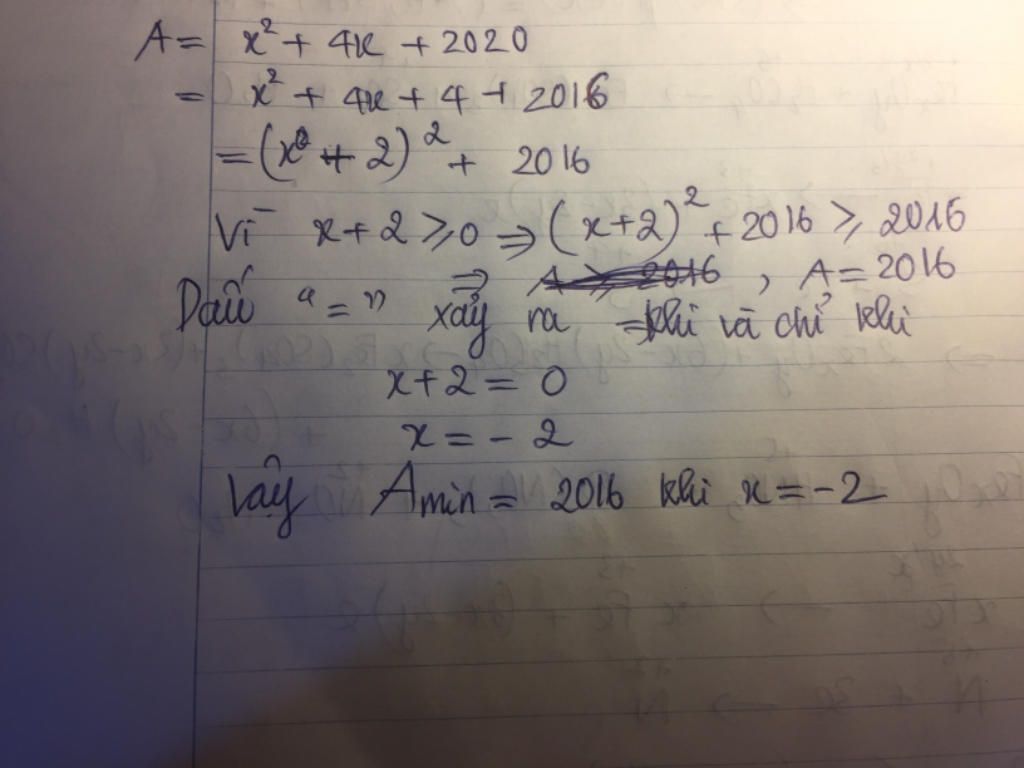 A = x² + 4x + 2020
= x² + 4x + 4 + 2016
= (x + 2)² + 2016
Vì x + 2 ⩾ 0 ⇒ (x+2)² + 2016 ⩾ 2016
⇒ A ⩾ 2016 , A = 2016
Dấu "=" xảy ra khi và chỉ khi
x + 2 = 0
x = - 2
Vậy Amin = 2016 khi x = -2